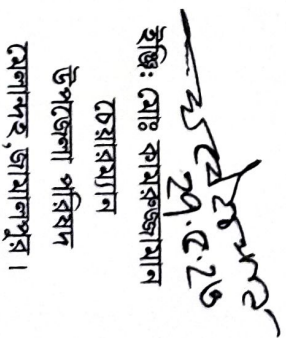 ২৭.৫.২৬
ইঞ্জি: মোঃ কামরুজ্জামান
চেয়ারম্যান
উপজেলা পরিষদ
মেলান্দহ, জামালপুর।